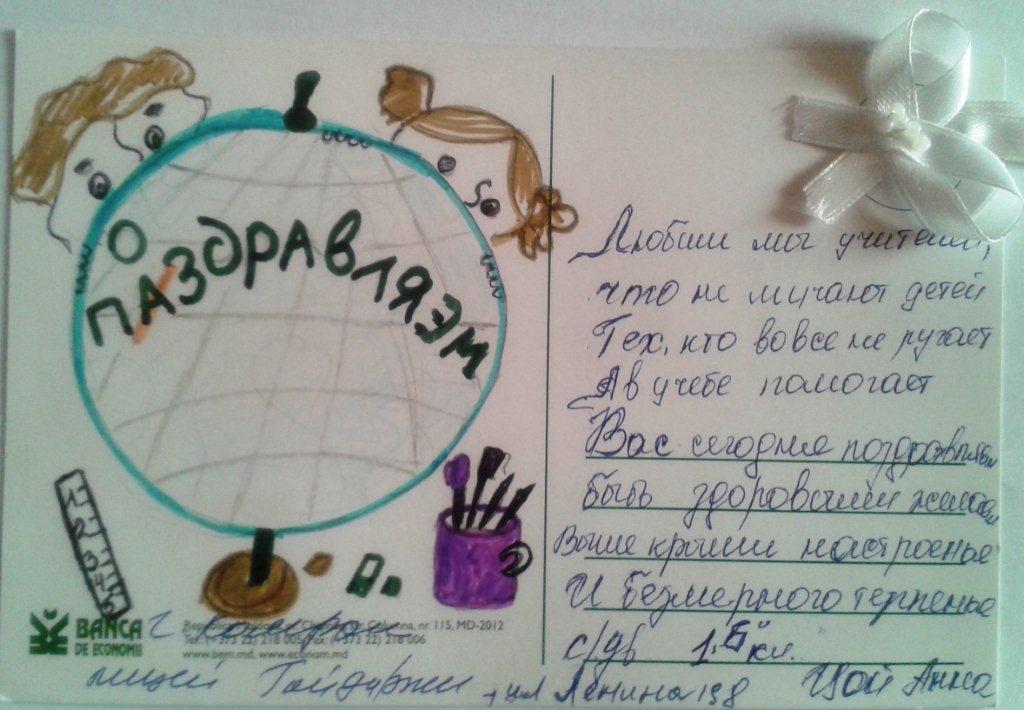 О
ПАЗДРАВЛЯЭМ
1 2 3 4 5
BANCA
DE ECONOMII
Republica Moldova, or. Chişinău, str. Columna, nr. 115, MD-2012
Tel. (+373 22) 218 005, Fax: (+373 22) 218 006
www.bem.md, www.econom.md
г
лицей Гайдаржи, ул Ленина 198
Любим мы учителей,
что не мучают детей
Тех, кто вовсе не ругает
А в учебе помогает
Вас сегодня поздравляем
быть здоровыми желаем
Выше крыши настроенье
И безмерного терпенье
с/дв 1 "Б" кл.
Цой Анна